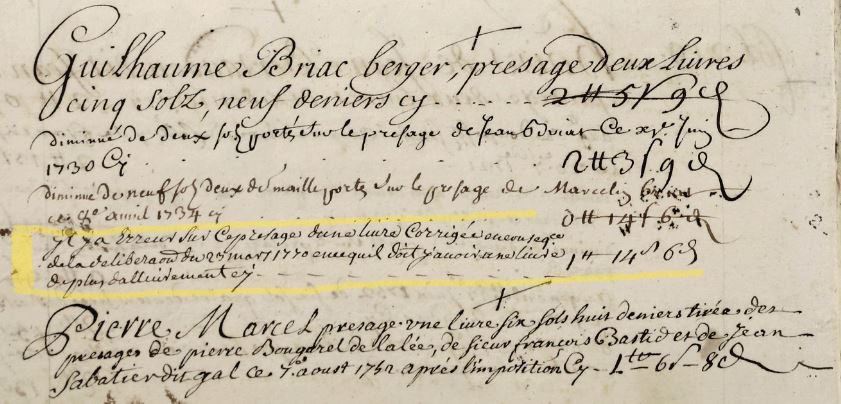 Guilhaume Briac berger, presage deux Livres
cinq solz, neuf deniers cy ...... 2 ₶ 5 s 9 d
diminué de deux sol portés sur le presage de Jean ce xve Juin
1730 Cy 2 ₶ 3 s 9 d
diminué de neuf sol deux d maille portés sur le presage de Marcelin
ce 8e avril 1734 cy 0 ₶ 14 s 6 d
y ya Erreur sur Ce presage dune livre Corrigée en conseqce
de la deliberaon du 25 mars 1770 en ce quil doit y avoir une livre 1 ₶ 14 s 6 d
de plus dallivrement cy
Pierre Marcel presage vne livre six sols huit deniers tirés des
presages de pierre Bougarel de lalée, de sieur françois Bastid et de Jean
Sabatier dit gal ce 7. aoust 1752 aprés limposition Cy - 1 ₶ - 6 s - 8 d